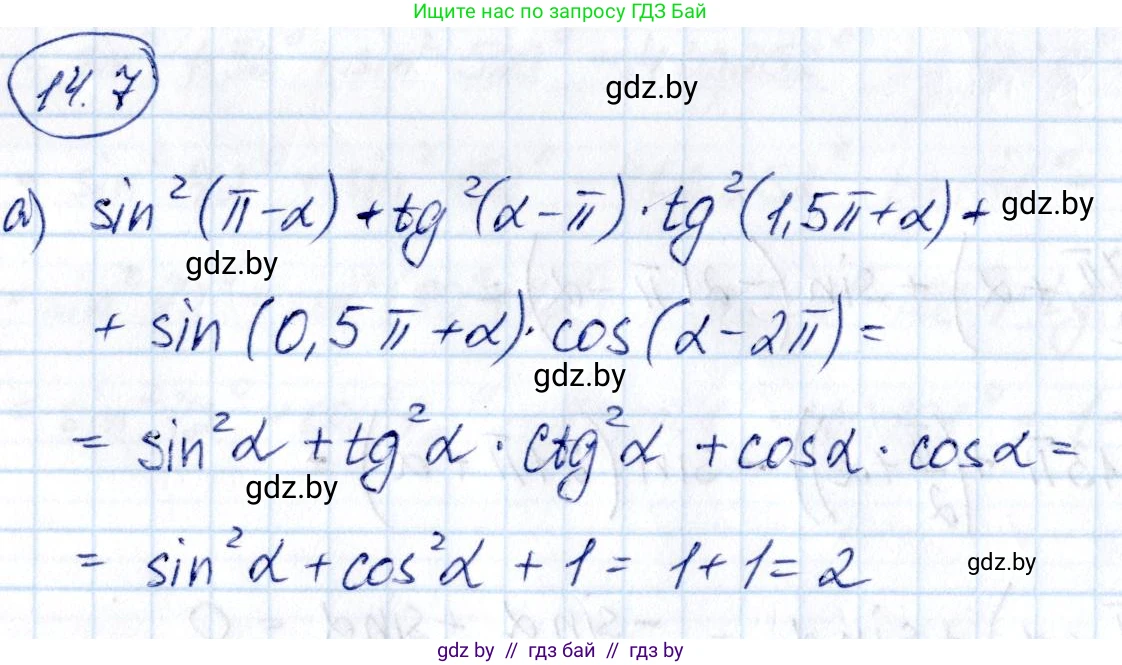 Ищите нас по запросу ГДЗ Бай
14.7
gdz.by
а) sin²(π-α) + tg²(α-π)·tg²(1,5π+α)+
gdz.by
gdz.by
+ sin(0,5π+α)·cos(α-2π)=
gdz.by
= sin²α + tg²α · ctg²α + cosα · cosα =
gdz.by
= sin²α + cos²α + 1 = 1+1=2
gdz.by
gdz.by // гдз бай // гдз by